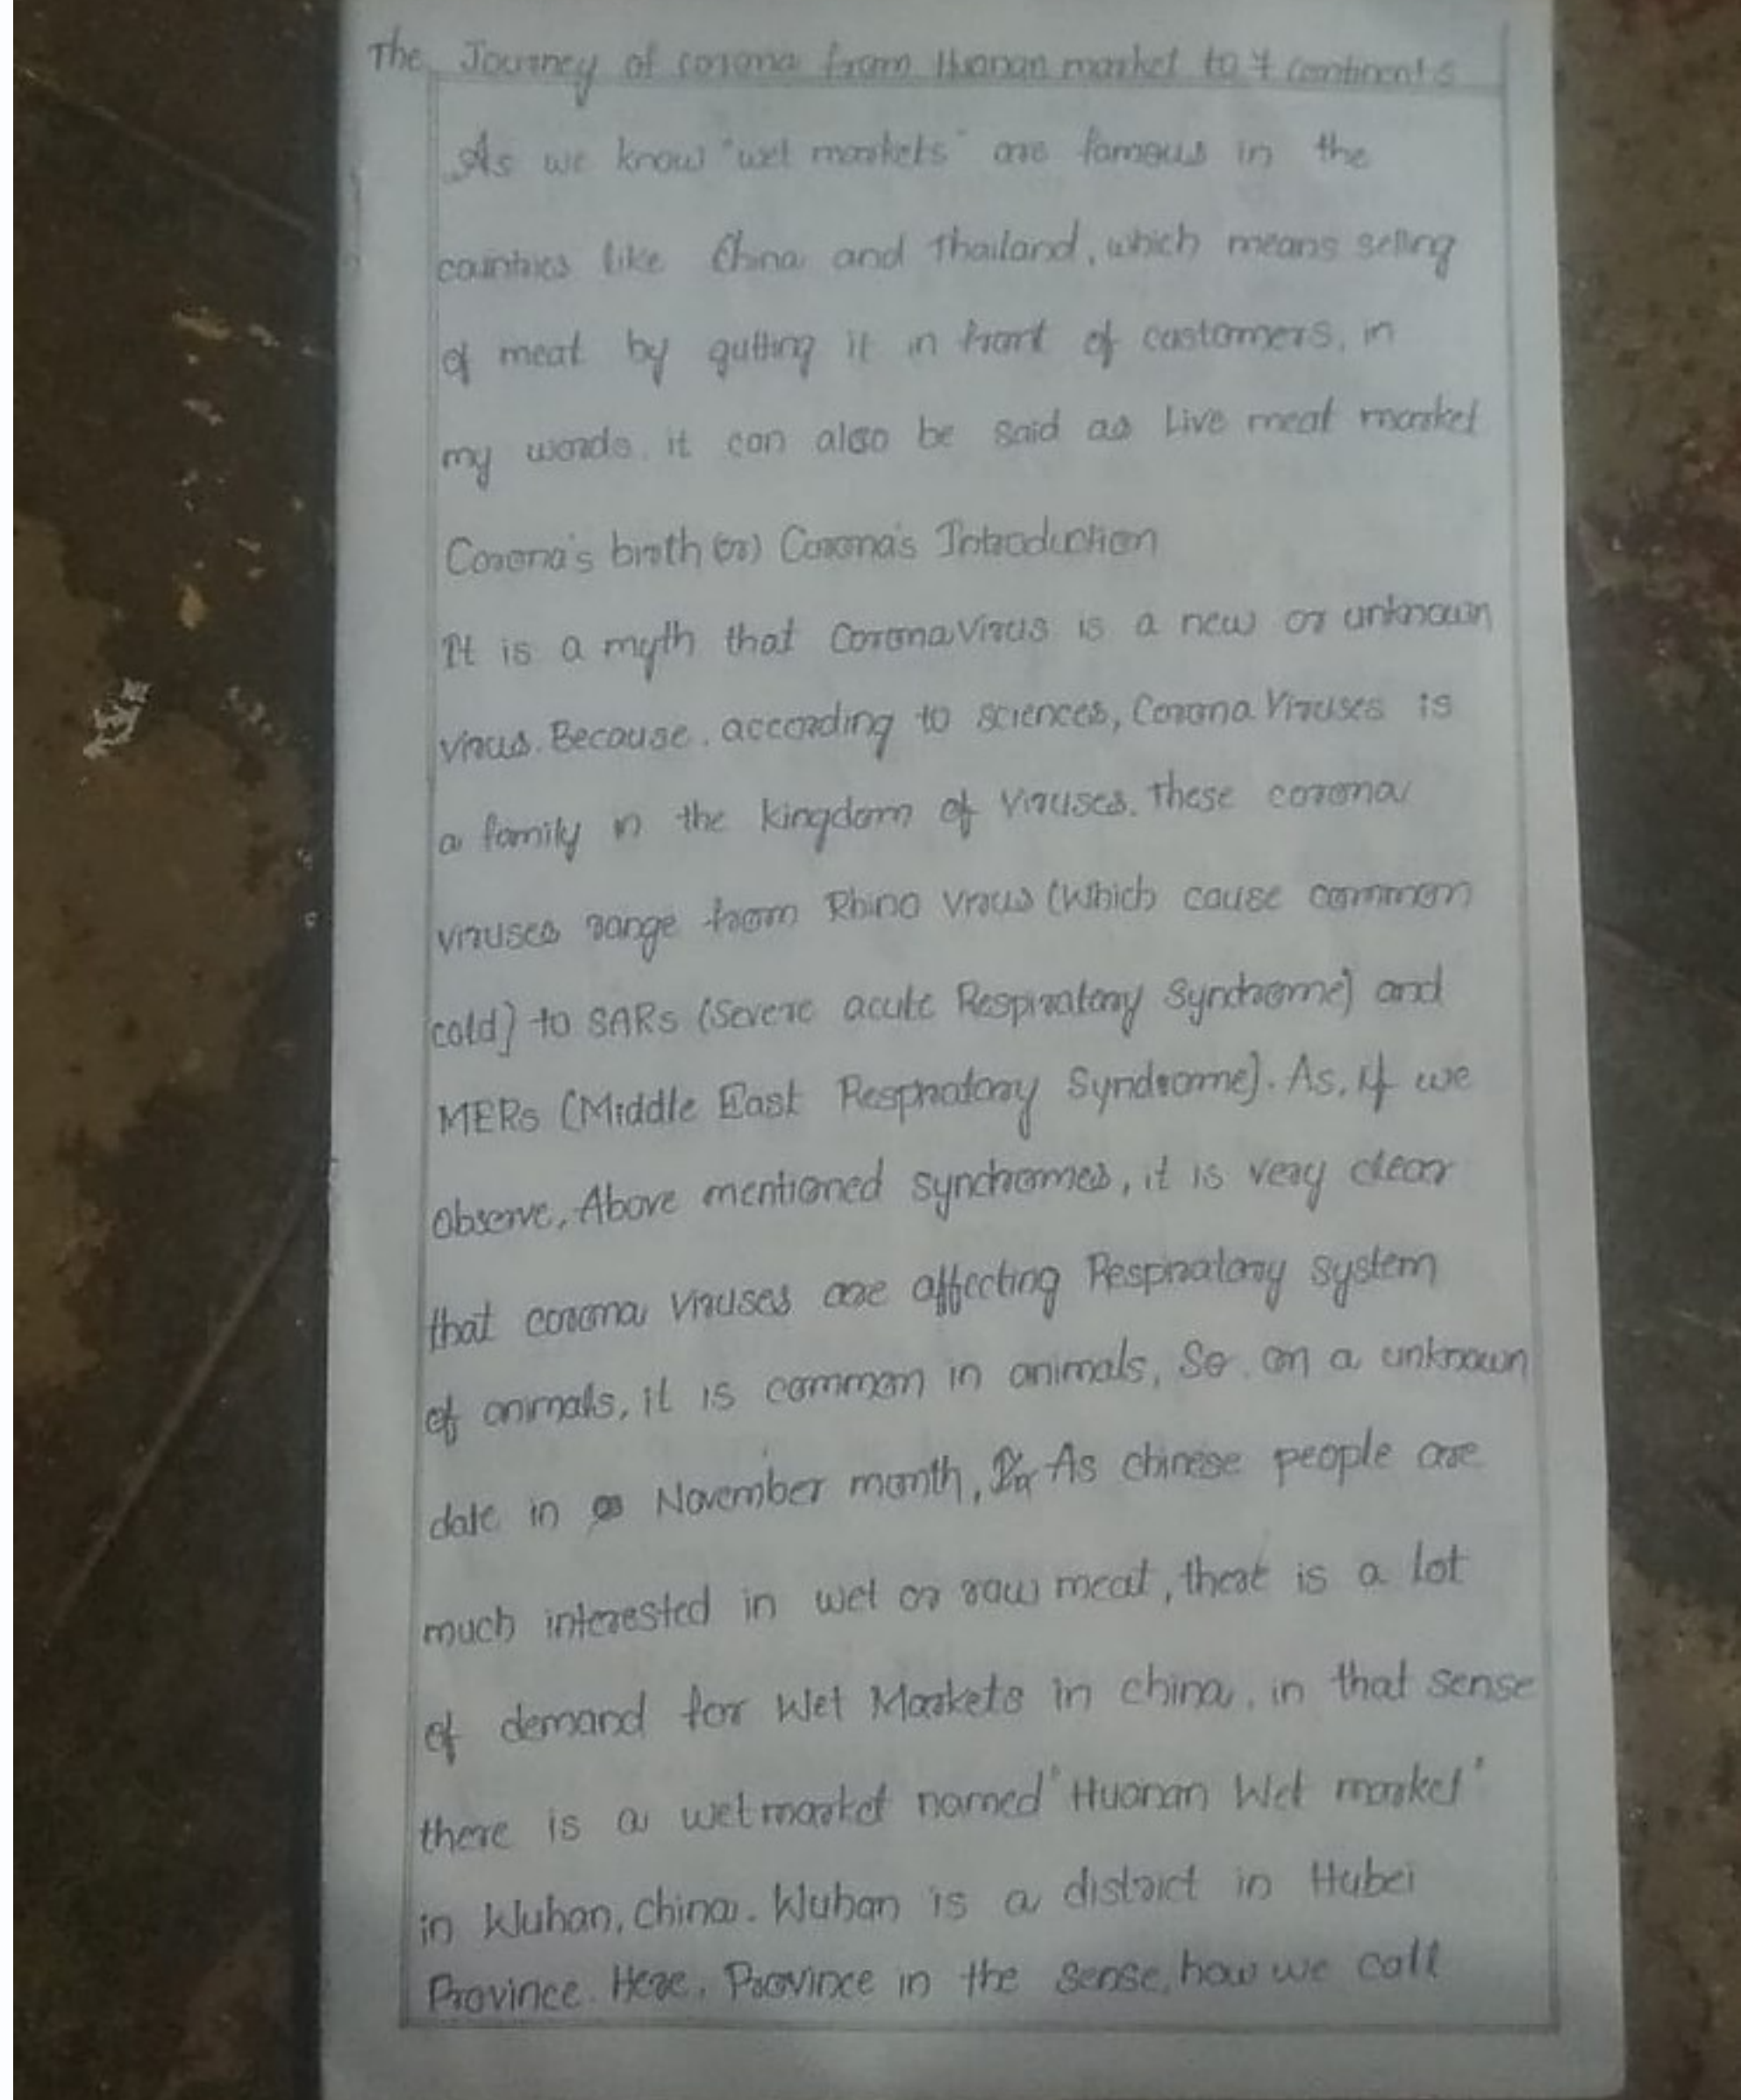 The Journey of corona from Huanan market to 7 continents
As we know "wet markets" are famous in the
countries like China and Thailand, which means selling
of meat by gutting it in front of customers, in
my words, it can also be said as Live meat market
Corona's birth (or) Corona's Introduction
It is a myth that CoronaVirus is a new or unknown
virus. Because, according to sciences, Corona Viruses is
a family in the kingdom of Viruses. These corona
viruses range from Rhino virus (Which cause common
cold) to SARs (Severe acute Respiratory Syndrome) and
MERs (Middle East Respiratory Syndrome). As, if we
observe, Above mentioned syndromes, it is very clear
that corona viruses are affecting Respiratory system
of animals, it is common in animals, So, on a unknown
date in November month, As chinese people are
much interested in wet or raw meat, there is a lot
of demand for Wet Markets in china, in that sense
there is a wetmarket named "Huanan Wet market"
in Wuhan, China. Wuhan is a district in Hubei
Province. Here, Province in the sense, how we call